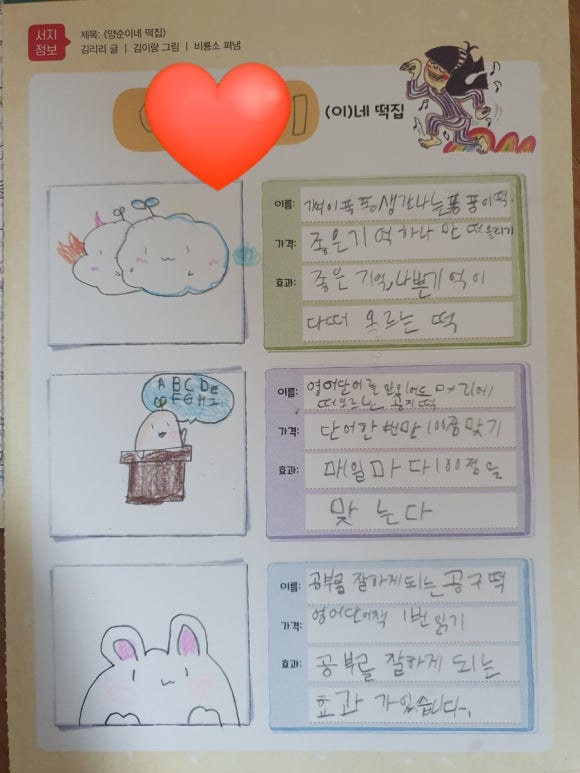 서지
정보
제목: 《양순이네 떡집》
김리리 글 | 김이랑 그림 | 비룡소 펴냄
(이)네 떡집
이름: 기억이 퐁퐁 생각나는 퐁퐁이떡.
가격: 좋은기억하나만 떠올리기
효과: 좋은 기억, 나쁜기억이
다떠오르는 떡
A B C D E
F G H I
이름: 영어단어를 안외어도 머리에
떠오르는 떡
가격: 단어한번만 100점맞기
효과: 매일마다 100점을
맞는다
이름: 공부를 잘하게되는 공구떡
가격: 영어단어책 1번 읽기
효과: 공부를 잘하게 되는
효과가있습니다.